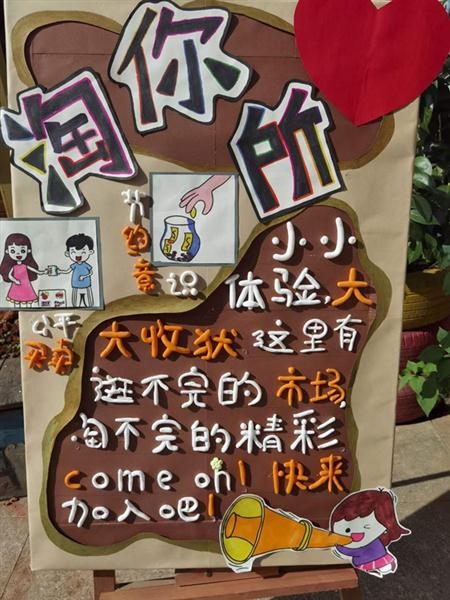 淘你所
节约意识
公平
买卖
小小
体验,大
大收获这里有
逛不完的市场,
淘不完的精彩
come on! 快来
加入吧!